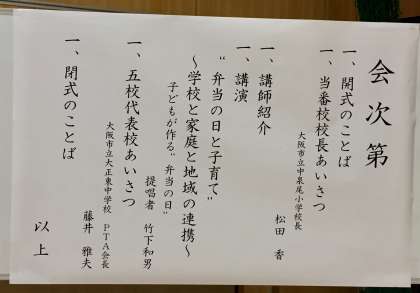 会次第
一、開式のことば
一、当番校校長あいさつ
大阪市立中泉尾小学校長
松田 香
一、講師紹介
一、講演
“弁当の日と子育て”
～学校と家庭と地域の連携～
子どもが作る“弁当の日”
提唱者 竹下和男
一、五校代表校あいさつ
大阪市立大正東中学校 PTA会長
藤井 雅夫
一、閉式のことば
以上